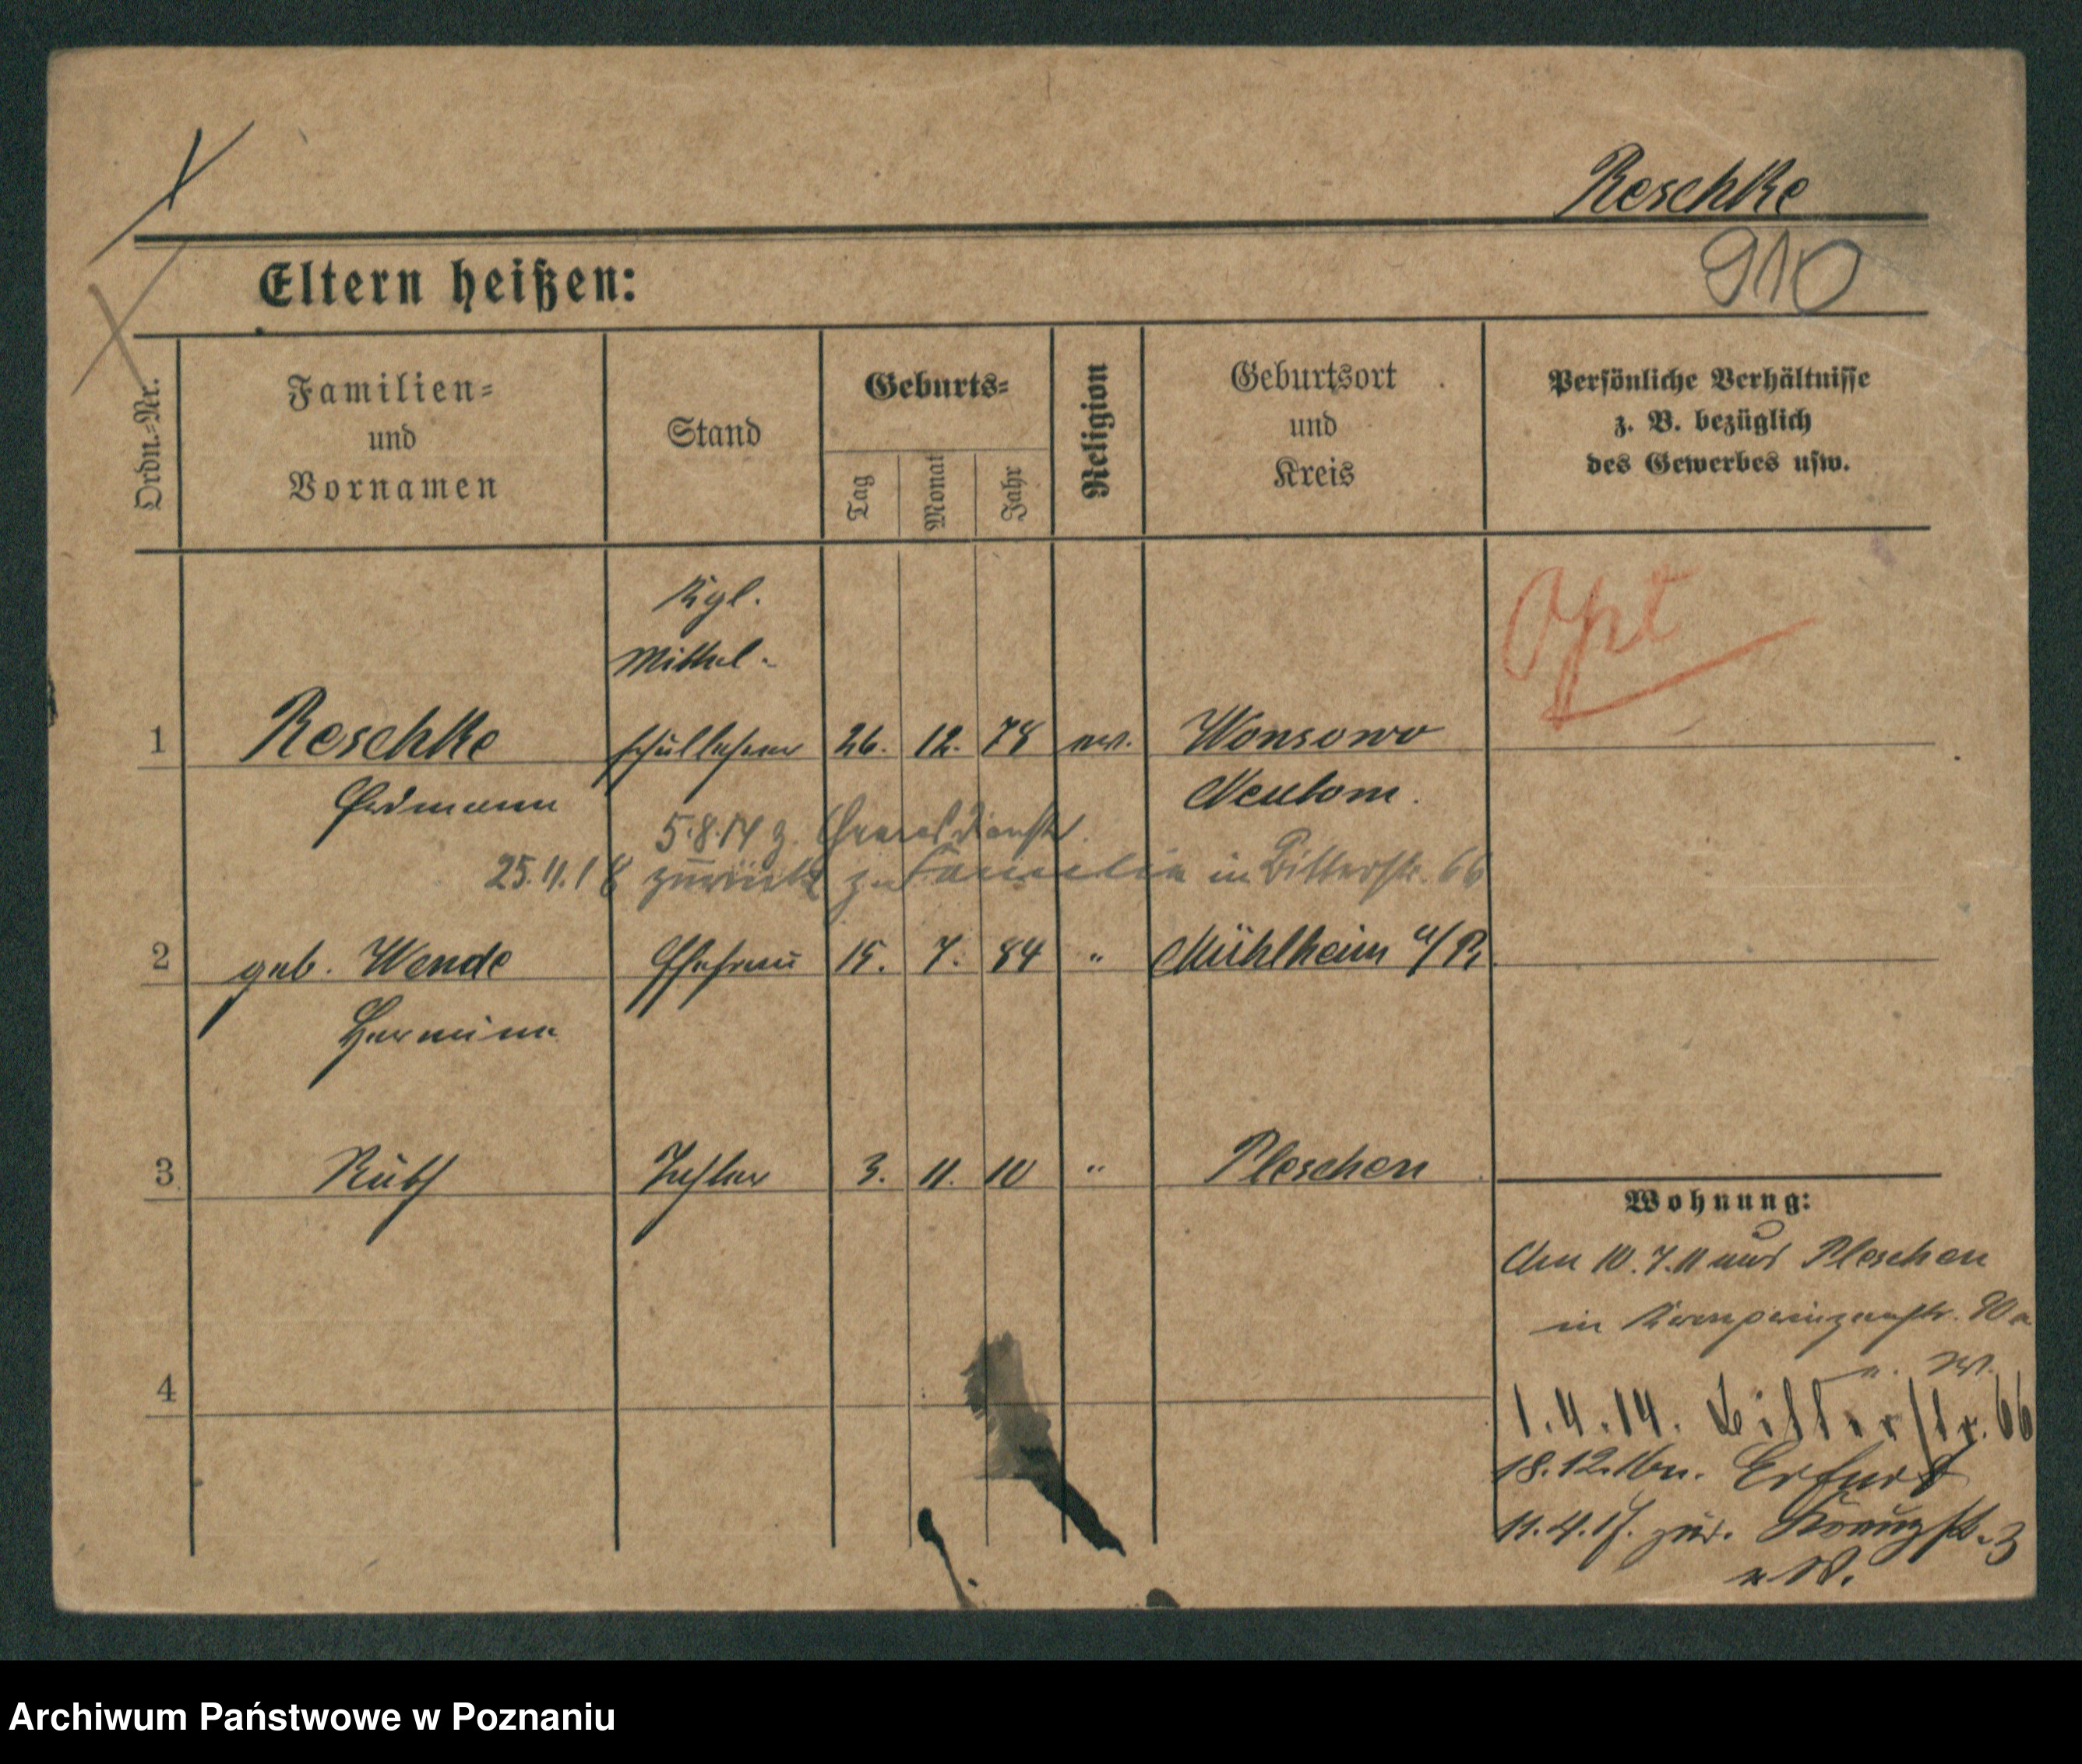 Reschke
910
Eltern heißen:
Ordn.-Nr.
Familien-
und
Vornamen
Stand
Geburts-
Tag
Monat
Jahr
Religion
Geburtsort
und
Kreis
Persönliche Verhältnisse
z. B. bezüglich
des Gewerbes usw.
Kgl.
Mittel-
Opt
1 Reschke schullehrer 26. 12. 78 ev. Wonsowo
Erdmann Neutom.
5.8.14 z. Heeresdienst
25.11.18 zurück zu Familie in Bitterstr. 66
2 geb. Wende Ehefrau 15. 7. 84 " Mühlheim a/R.
Hermine
3 Ruth Tochter 3. 11. 10 " Pleschen
4
Wohnung:
Am 10.7.11 aus Pleschen
in Kronprinzenstr. 90a
u. W.
1.4.14. Bitterstr. 66
18.12.16 n. Erfurt
11.4.17. zur. Kreuzstr. 3
u. W.
Archiwum Państwowe w Poznaniu